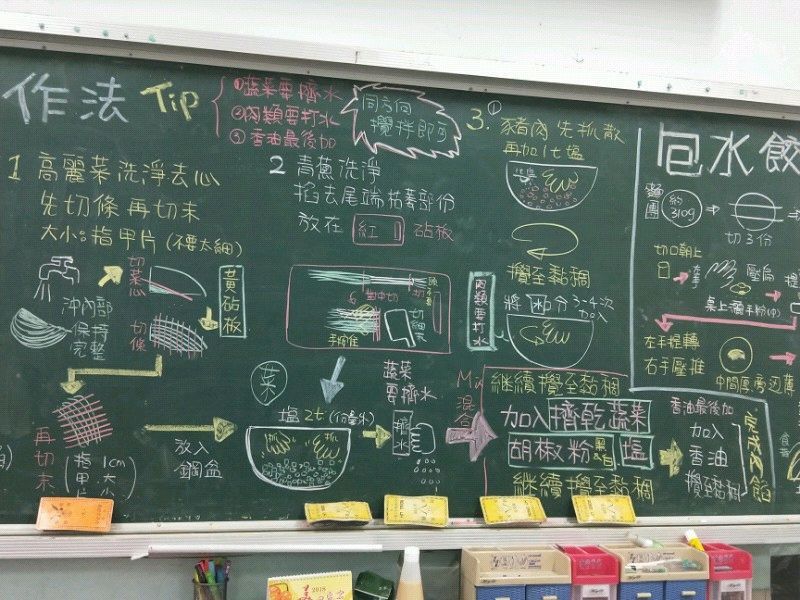 作法
Tip
①蔬菜要擠水
②肉類要打水
③香油最後加
同方向
攪拌即可
1 高麗菜洗淨去心
先切條再切末
大小:指甲片(不要太細)
沖內部
保持
完整
切菜心
切條
黃砧板
再切末
1cm
指甲片
大小
放入
鋼盆
2 青蔥洗淨
掐去尾端枯萎部份
放在 紅 砧板
對中切
切細末
菜
鹽2t
抓
抓
蔬菜
要擠水
擠水
3.
①
豬肉先抓散
再加1t鹽
攪至黏稠
肉類要打水
將水分3~4次
加入
混合
繼續攪至黏稠
加入擠乾蔬菜
胡椒粉 黑 白 鹽
繼續攪至黏稠
香油最後加
加入
香油
攪至黏稠
包水餃
麵團
約
310g
切3份
切口朝上
壓扁
桌上灑手粉(中)
左手提轉
右手壓推
中間厚旁边薄
2018